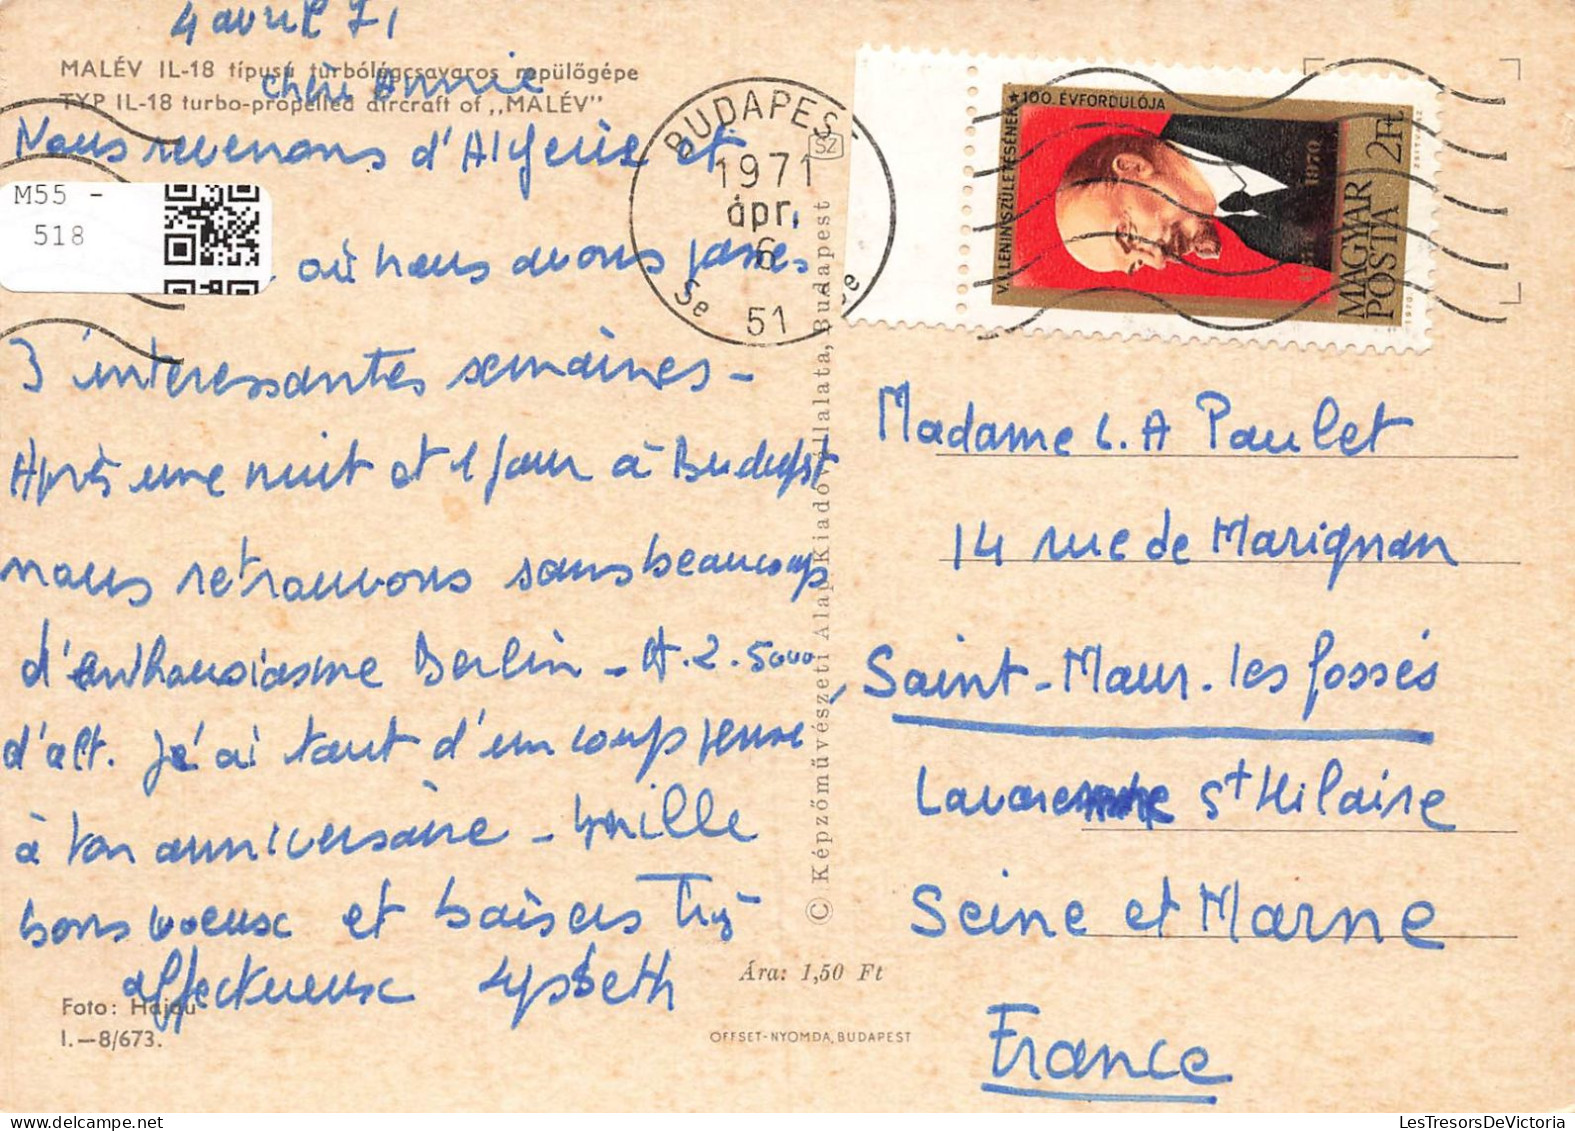 4 avril 71
MALÉV IL-18 típusú turbólégcsavaros repülőgépe
TYP IL-18 turbo-propelled aircraft of „MALÉV”
Chère Annie
Nous revenons d'Algérie et
M55 -
518
où nous avons passé
3 interessantes semaines -
Après une nuit et 1 jour à Budapest
nous retrouvons sans beaucoup
d'enthousiasme Berlin - A. 2. 5000
d'alt. J'ai tout d'un coup pensé
à ton anniversaire - Mille
bons voeux et baisers Très
affectueux Lysbeth
Foto: Hajdu
I.—8/673.
Ára: 1,50 Ft
OFFSET-NYOMDA, BUDAPEST
© Képzőművészeti Alap Kiadóvállalata, Budapest
SZ
BUDAPEST
1971
ápr.
6
51
V. I. LENIN SZÜLETÉSÉNEK ★ 100. ÉVFORDULÓJA
1970
MAGYAR
POSTA 2Ft
Madame L. A Paulet
14 rue de Marignan
Saint-Maur-les fossés
St Hilaire
Seine et Marne
France
LesTresorsDeVictoria.com